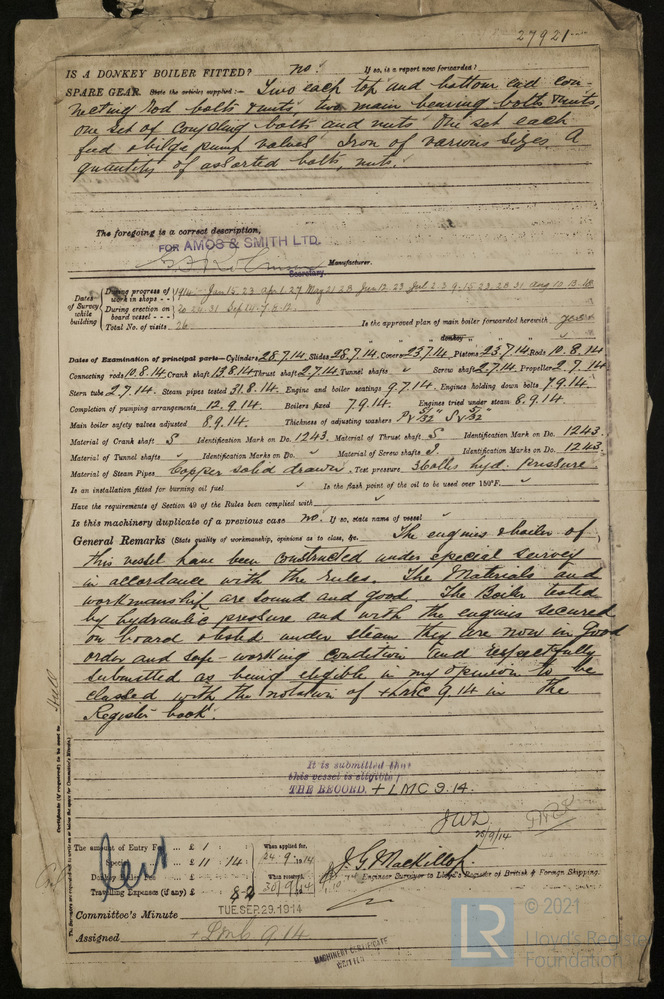 27921
IS A DONKEY BOILER FITTED? no. If so, is a report now forwarded?
SPARE GEAR. State the articles supplied:— Two each top and bottom end con-
necting rod bolts & nuts, two main bearing bolts & nuts,
one set of coupling bolts and nuts One set each
feed & bilge pump valves Iron of various sizes. A
quantity of assorted bolts, nuts.
The foregoing is a correct description,
FOR AMOS & SMITH LTD.
Manufacturer.
Secretary.
Dates of Survey while building
During progress of work in shops - - 1914 Jan 15. 23 Apl. 1. 27 May 21 28 Jun 12. 23 Jul 2. 3 9. 15 23. 28 31 Aug 10 13. 18
During erection on board vessel - - - 20 24. 31 Sep 1. 4. 7. 8. 12.
Total No. of visits 26
Is the approved plan of main boiler forwarded herewith yes
" " " donkey " " "
Dates of Examination of principal parts—Cylinders 28.7.14. Slides 28.7.14. Covers 23.7.14. Pistons 23.7.14. Rods 10.8.14
Connecting rods 10.8.14. Crank shaft 13.8.14 Thrust shaft 2.7.14. Tunnel shafts " Screw shaft 2.7.14. Propeller 2.7.14
Stern tube 2.7.14. Steam pipes tested 31.8.14. Engine and boiler seatings 9.7.14. Engines holding down bolts 7.9.14.
Completion of pumping arrangements 12.9.14. Boilers fixed 7.9.14. Engines tried under steam 8.9.14.
Main boiler safety valves adjusted 8.9.14. Thickness of adjusting washers P V 5/32" S V 5/32"
Material of Crank shaft S Identification Mark on Do. 1243. Material of Thrust shaft S Identification Mark on Do. 1243.
Material of Tunnel shafts " Identification Marks on Do. " Material of Screw shafts I. Identification Marks on Do. 1243.
Material of Steam Pipes Copper solid drawn. Test pressure 360 lbs hyd. pressure
Is an installation fitted for burning oil fuel " Is the flash point of the oil to be used over 150°F. "
Have the requirements of Section 49 of the Rules been complied with "
Is this machinery duplicate of a previous case no. If so, state name of vessel "
General Remarks (State quality of workmanship, opinions as to class, &c. The engines & boiler of
this vessel have been constructed under special survey
in accordance with the rules. The Materials and
workmanship are sound and good. The Boiler tested
by hydraulic pressure and with the engines secured
on board & tested under steam they are now in good
order and safe working condition and respectfully
submitted as being eligible in my opinion to be
classed with the notation of + LMC 9.14 in the
Register book.
It is submitted that
this vessel is eligible
THE RECORD. + LMC 9.14.
25/9/14
The amount of Entry Fee .. £ 1
Special .. £ 11 . 14
Donkey Boiler Fee .. £
Travelling Expenses (if any) £
When applied for,
24.9.1914
When received,
30/9/14
J. G. Mackillop.
Engineer Surveyor to Lloyd's Register of British & Foreign Shipping.
Committee's Minute TUE. SEP. 29. 1914
Assigned + Lmc 9.14
MACHINERY CERTIFICATE
WRITTEN
Hull
Certificate (if required) to be sent to
LR
© 2021
Lloyd's Register
Foundation